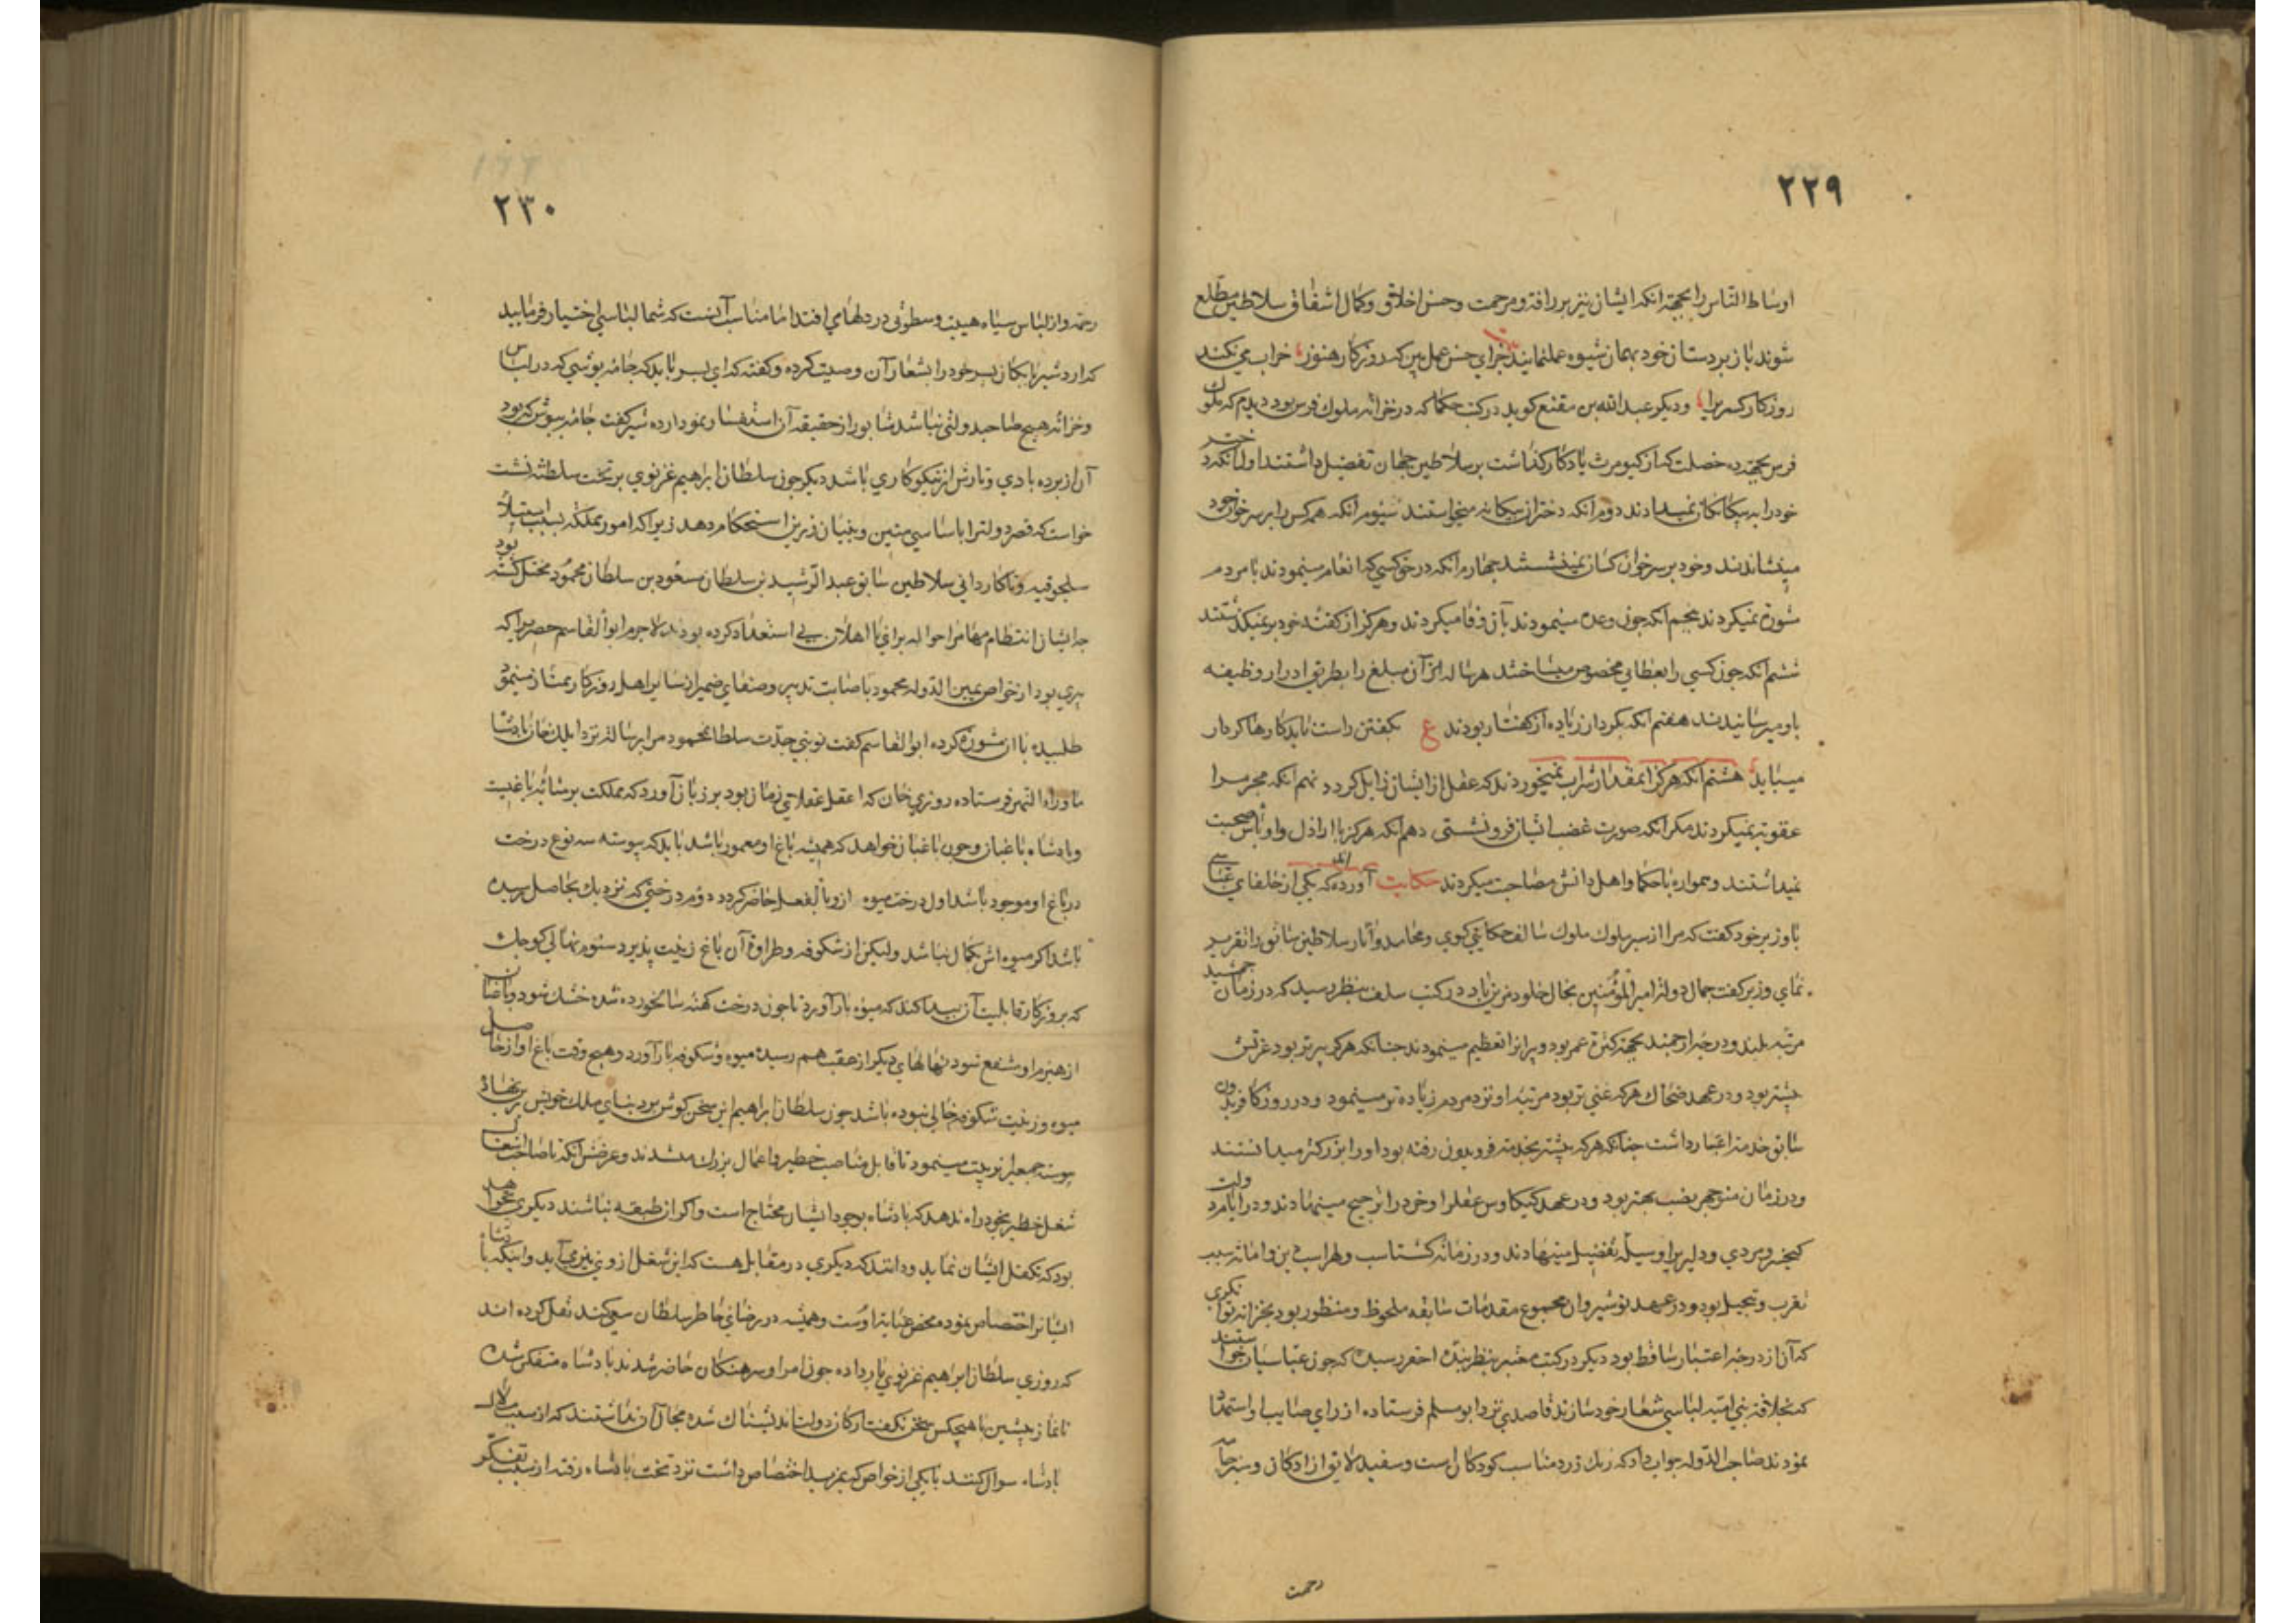 ۲۲۹
اوساط الناس را بجهة انکه ایشان نیز بر رافة و مرحمت و حسن اخلاق و کمال اشفاق سلاطین مطلع
شوند با زیردستان خود بهمان شیوه عمل نمایند جزای حسن عمل بین که روزکار هنوز خراب می نکند
روزکار کسری را و دیکر عبد الله بن مقنع کوید در کتب حکما که در خزانه ملوک فرس بود دیدم که ملوک
فرس بجهة ده خصلت که از کیومرث یادکار کذاشت بر سلاطین جهان تفضیل داشتند اول انکه دختر
خود را به بیکانکان نمیدادند دوم انکه دختر از بیکانه میخواستند سیوم انکه همه کس را بر سر خوان خود
مینشاندند و خود بر سر خوان کسان نمینشستند جهارم انکه در حق کسی که انعام مینمودند با مردم
شورة نمیکردند پنجم انکه جون وعده مینمودند بآن وفا میکردند و هرکز از کفته خود بر نمیکذشتند
ششم انکه جون کسی را بعطایی مخصوص میساختند هر ساله از آن مبلغ را بطریق ادرار و وظیفه
باو میرسانیدند هفتم انکه بکردار زیاده از کفتار بودند ع بکفتن راست ناید کارها کردار
میباید هشتم انکه هرکز انمقدار شراب نمیخوردند که عقل از ایشان زایل کردد نهم انکه مجرم را
عقوبة نمیکردند مکر انکه صورت غضب ایشان فرو نشستی دهم انکه هرکز با اراذل و اوباش صحبت
نمیداشتند و همواره با حکما و اهل دانش مصاحبت میکردند حکایت آورده اند که یکی از خلفای عباسی
با وزیر خود کفت که مرا از سیر ملوک سالف حکایتی کوی و محامد و آثار سلاطین سابق را تقریر
نمای وزیر کفت جمال دولة امیر المؤمنین بخال خلود مزین باد در کتب سلف بنظر رسید که در زمان جمشید
مرتبه بلند و درجه ارجمند بجهة کثرة عمر بود و پیرانرا تعظیم مینمودند جنانکه هرکه پیرتر بود عزتش
بیشتر بود و در عهد ضحاک هرکه غنی تر بود مرتبه او نزد مردم زیاده تر مینمود و در روزکار فریدون
سابق خدمة اعتبار داشت جنانکه هرکه بیشتر بخدمة فریدون رفته بود او را بزرکتر میدانستند
و در زمان منوجهر بنسب بهتر بود و در عهد کیکاوس عقل را و خرد را ترجیح مینهادند و در ایام دولت
کیخسرو مردی و دلیری را وسیله تفضیل مینهادند و در زمانه کشتاسب و لهراسب دین و امانة سبب
تقرب و تبجیل بود و در عهد نوشیروان مجموع مقدمات سابقه ملحوظ و منظور بود بجز از توانکری
که آن از درجه اعتبار ساقط بود دیکر در کتب معتبر بنظر بنده احقر رسیده که جون عباسیان خواستند
که بخلاف بنی امیه لباسی شعار خود سازند قاصدی نزد ابو مسلم فرستاده از رای صایب او استمداد
نمودند صاحب الدوله جواب داد که رنک زرد مناسب کودکان است و سفید لایق ازادکان و سبز جامه
رحمت
۲۳۰
رحمة و از لباس سیاه هیبت و سطوتی در دلهای افتد اما مناسب آنست که شما لباسی اختیار فرمایید
که اردشیر بابکان پسر خود را بشعار آن وصیت کرده و کفته که ای پسر باید که جامه پوشی که در لباس
و خزانه هیچ صاحب دولتی نباشد شابور از حقیقة آن استفسار نمود اردشیر کفت جامه بپوش که پود
آن از بردباری و تارش از نیکوکاری باشد دیکر جون سلطان ابراهیم غزنوی بر تخت سلطنة نشست
خواست که قصر دولترا باساسی متین و بنیان زیرین استحکام دهد زیرا که امور مملکة بسبب استیلاء
سلجوقیه و ناکاردانی سلاطین سابق عبد الرشید بن سلطان مسعود بن سلطان محمود مختل کشته بود
جه ایشان انتظام مهام را حواله برای نا اهلان بی استعداد کرده بودند لاجرم ابو القاسم حصیری را که
پیری بود از خواص یمین الدوله محمود باصابت تدبیر و صفای ضمیر از سایر اهل روزکار ممتاز مینمود
طلبیده با او مشورة کرده ابو القاسم کفت نوبتی جدت سلطان محمود مرا برسالة نزد ایلدخان پادشاه
ماوراء النهر فرستاده روزی خان که اعقل عقلای زمان بود بر زبان آورد که مملکت بر مثابه باغیست
و پادشاه باغبان و جون باغبان خواهد که همیشه باغ او معمور باشد باید که پیوسته سه نوع درخت
در باغ او موجود باشد اول درخت میوه ازو بالفعل حاضر کردد دوم درختی که نزدیک بحاصل رسیده
باشد اکر میوه اش بکمال نباشد ولیکن از شکوفه و طراوة آن باغ زینت پذیرد سیوم نهالی کوجک
که بروزکار قابلیت آن پیدا کند که میوه بار آورد تا جون درخت کهنه سالخورده شده خشک شود و باغبان
از هیزم او منتفع شود نهالهای دیکر از عقب هم رسیده میوه و شکوفه بار آورد و هیچ وقت باغ او از حاصل
میوه و زینت شکوفه خالی نبوده باشد جون سلطان ابراهیم این سخن کوش برد بنای ملک خویش بر نهاد
پیوسته جمعی را تربیت مینمود تا قابل مناصب خطیر و اعمال بزرک میشدند و غرض آنکه تا صاحب اشغال
شغل خطیر بخود راه ندهد که پادشاه بوجود ایشان محتاج است و اکر از طبقه نباشند دیکری نخواهد
بود که تکفل ایشان نماید و دانند که دیکری در مقابل هست که این شغل ازو نیز می آید و اینکه پادشاه
ایشانرا اختصاص نموده محض عنایة اوست و همیشه در رضای خاطر سلطان سعی کنند نقل کرده اند
که روزی سلطان ابراهیم غزنوی بار داده جون امرا و سرهنکان حاضر شدند پادشاه متفکر شده
تا نماز پیشین با هیچکس سخن نکفت ارکان دولت اندیشناک شده مجال آن نداشتند که از سبب ملال
پادشاه سوال کنند تا یکی از خواص که بمزید اختصاص داشت نزد تخت پادشاه رفته از سبب تفکر